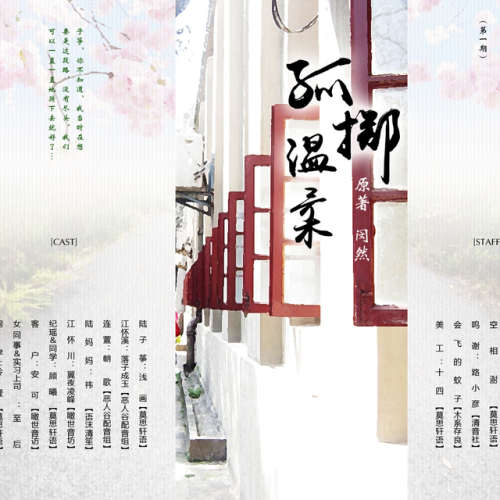 (第一期)
孤掷
温柔
原著 闵然
[STAFF
空相谢
鸣谢:路小彦【清音社】
会飞的蚊子【木系存良】
美工:十四【莫思轩语】
子筝,你不知道,我当时在想
要是这段路,没有尽头,我们
可以一直一直地 下去就好了…
[CAST]
陆子筝:浅画【莫思轩语】
江怀溪:落子成玉【恶人谷配音组】
连萱:朝歌【恶人谷配音组】
陆妈妈:祎【语沫清笙】
江怀川:翼夜凌峰【瞰世音坊】
纪瑶&同学:顾曦【莫思轩语】
客户:安可【瞰世音坊】
女同事&实习上司:至后【莫思轩语】